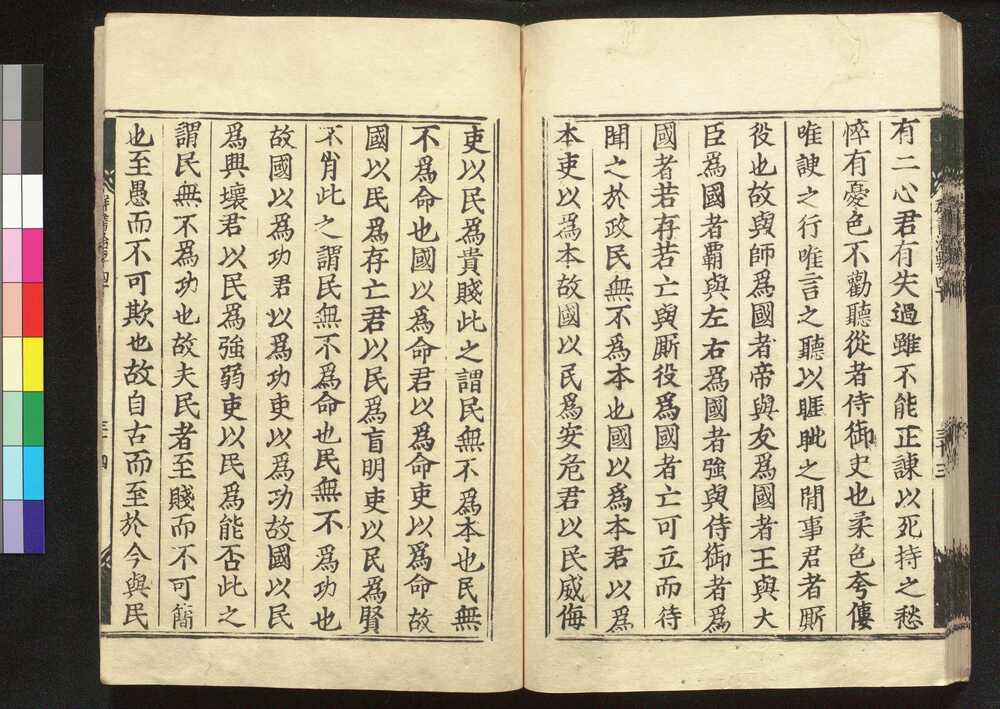 有二心君有失過雖不能正諫以死持之愁
悴有憂色不勸聽從者侍御史也柔色夸僂
唯諛之行唯言之聽以睚眦之閒事君者厮
役也故與師爲國者帝與友爲國者王與大
臣爲國者霸與左右爲國者強與侍御者爲
國者若存若亡與厮役爲國者亡可立而待
聞之於政民無不爲本也國以爲本君以爲
本吏以爲本故國以民爲安危君以民威侮
吏以民爲貴賤此之謂民無不爲本也民無
不爲命也國以爲命君以爲命吏以爲命故
國以民爲存亡君以民爲盲明吏以民爲賢
不肖此之謂民無不爲命也民無不爲功也
故國以爲功君以爲功吏以爲功故國以民
爲興壞君以民爲強弱吏以民爲能否此之
謂民無不爲功也故夫民者至賤而不可簡
也至愚而不可欺也故自古而至於今與民
群書治要四十
三十四
三十三